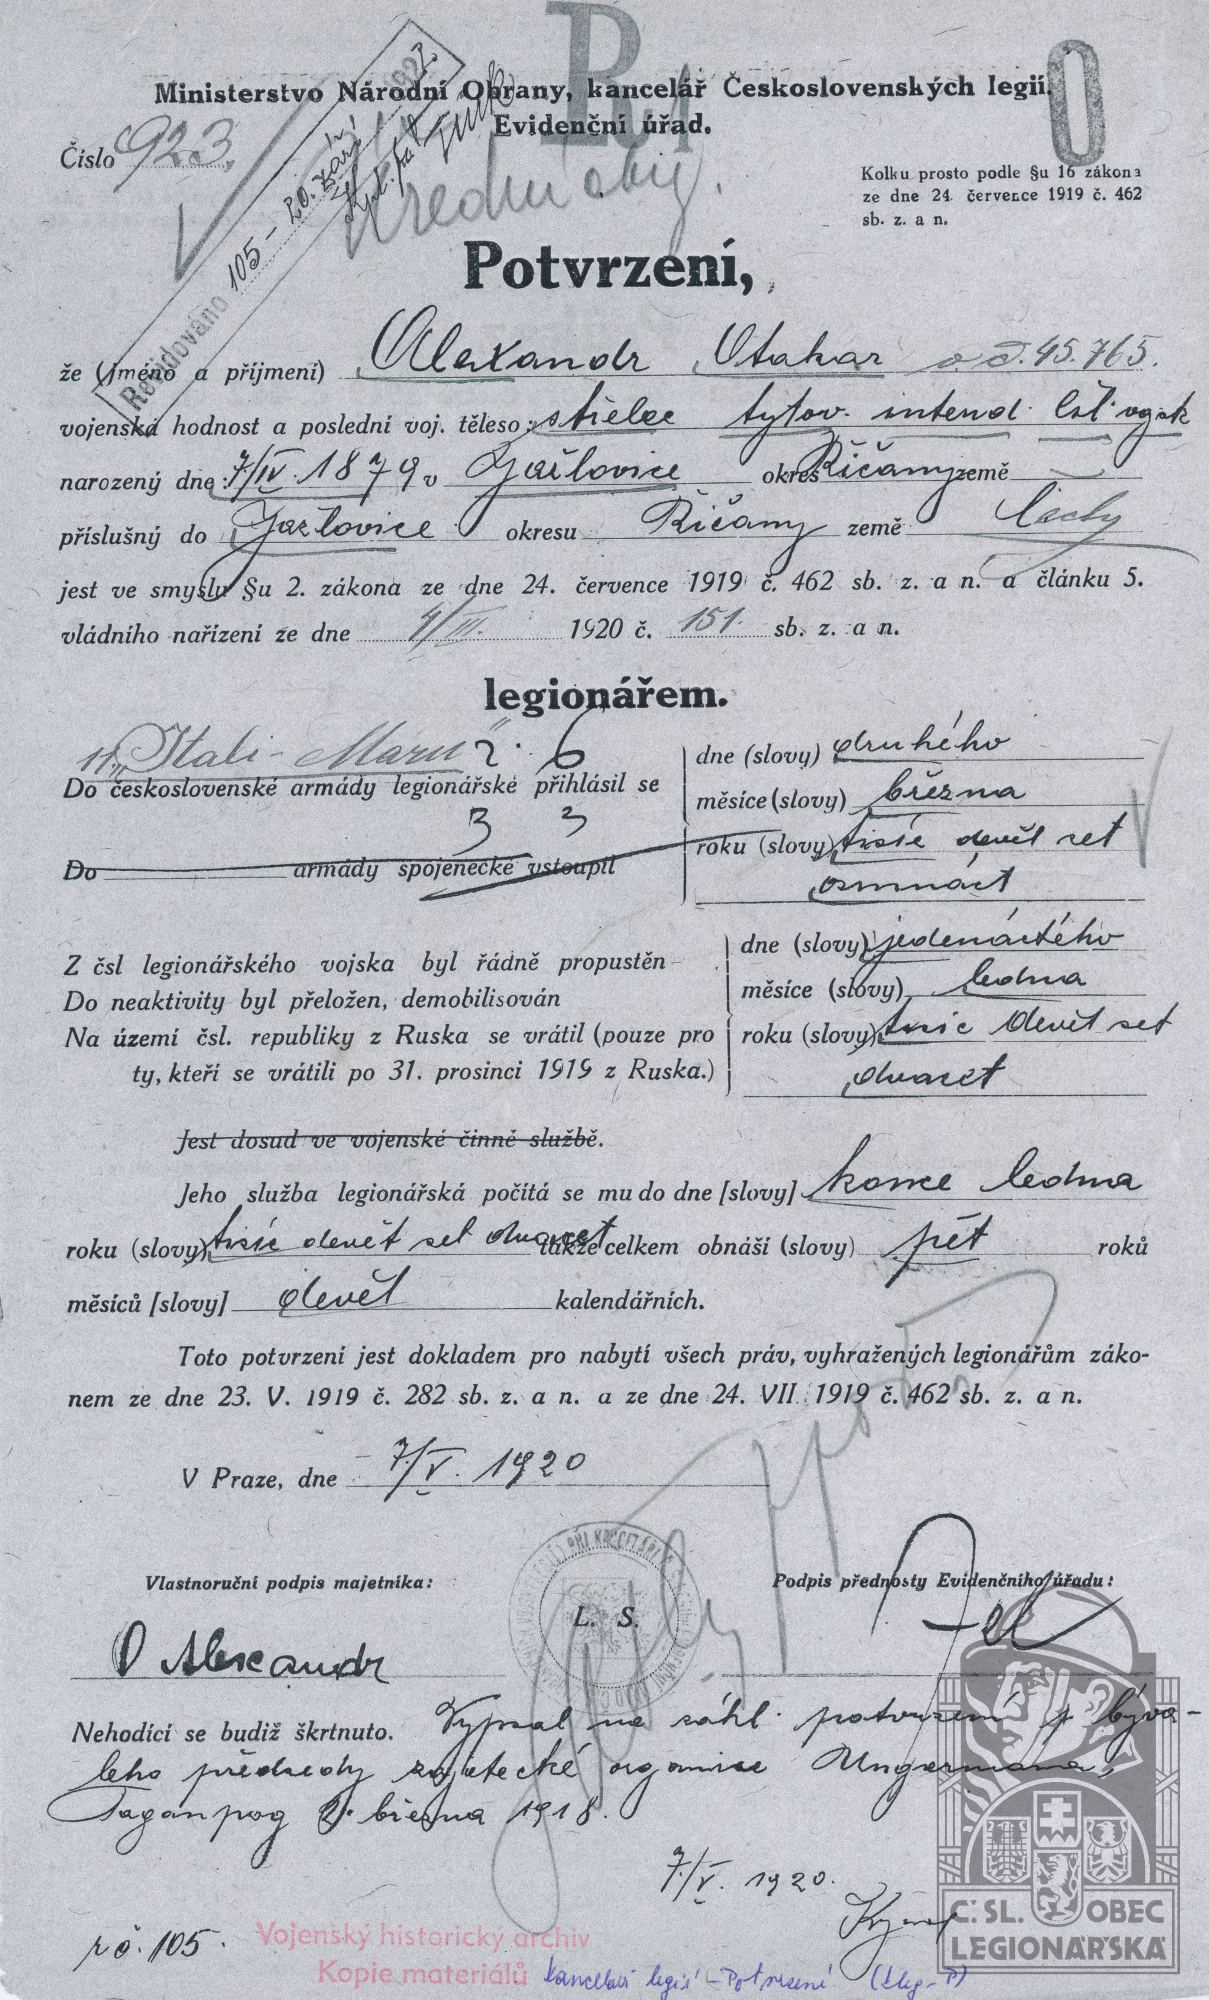 R
0
Ministerstvo Národní Obrany, kancelář Československých legií.
Evidenční úřad.
Číslo 923
Kolku prosto podle §u 16 zákona
ze dne 24. července 1919 č. 462
sb. z. a n.
Revidováno 105 - 20. září
Potvrzení,
že (Jméno a příjmení) Alexandr Otakar o. č. 45.765.
vojenská hodnost a poslední voj. těleso: střelec tylov. intend. čsl. vojsk
narozený dne: 7/IV. 1879 v Jažlovice okres Říčany země
příslušný do Jažlovice okresu Říčany země Čechy
jest ve smyslu §u 2. zákona ze dne 24. července 1919 č. 462 sb. z. a n. a článku 5.
vládního nařízení ze dne 4/III. 1920 č. 151. sb. z. a n.
legionářem.
Do československé armády legionářské přihlásil se
Do armády spojenecké vstoupil
dne (slovy) druhého
měsíce (slovy) března
roku (slovy) tisíc devět set
osmnáct
Z čsl legionářského vojska byl řádně propustěn
Do neaktivity byl přeložen, demobilisován
Na území čsl. republiky z Ruska se vrátil (pouze pro
ty, kteří se vrátili po 31. prosinci 1919 z Ruska.)
dne (slovy) jedenáctého
měsíce (slovy) ledna
roku (slovy) tisíc devět set
dvacet
Jest dosud ve vojenské činné službě.
Jeho služba legionářská počítá se mu do dne [slovy] konce ledna
roku (slovy) tisíc devět set dvacet takže celkem obnáší (slovy) pět roků
měsíců [slovy] devět kalendářních.
Toto potvrzení jest dokladem pro nabytí všech práv, vyhražených legionářům záko-
nem ze dne 23. V. 1919 č. 282 sb. z. a n. a ze dne 24. VII. 1919 č. 462 sb. z. a n.
V Praze, dne 7/V. 1920
Vlastnoruční podpis majetníka:
L. S.
Podpis přednosty Evidenčního úřadu:
O Alexandr
Nehodící se budiž škrtnuto. Vypsal na zákl. potvrzení p. býva-
lého předsedy zajatecké organisace Ungermana,
Taganrog 2. března 1918.
7/V. 1920.
r. č. 105.
Vojenský historický archiv
Kopie materiálů
kancelář legií - Potvrzení (kleg-P)
Č. SL. OBEC
LEGIONÁŘSKÁ